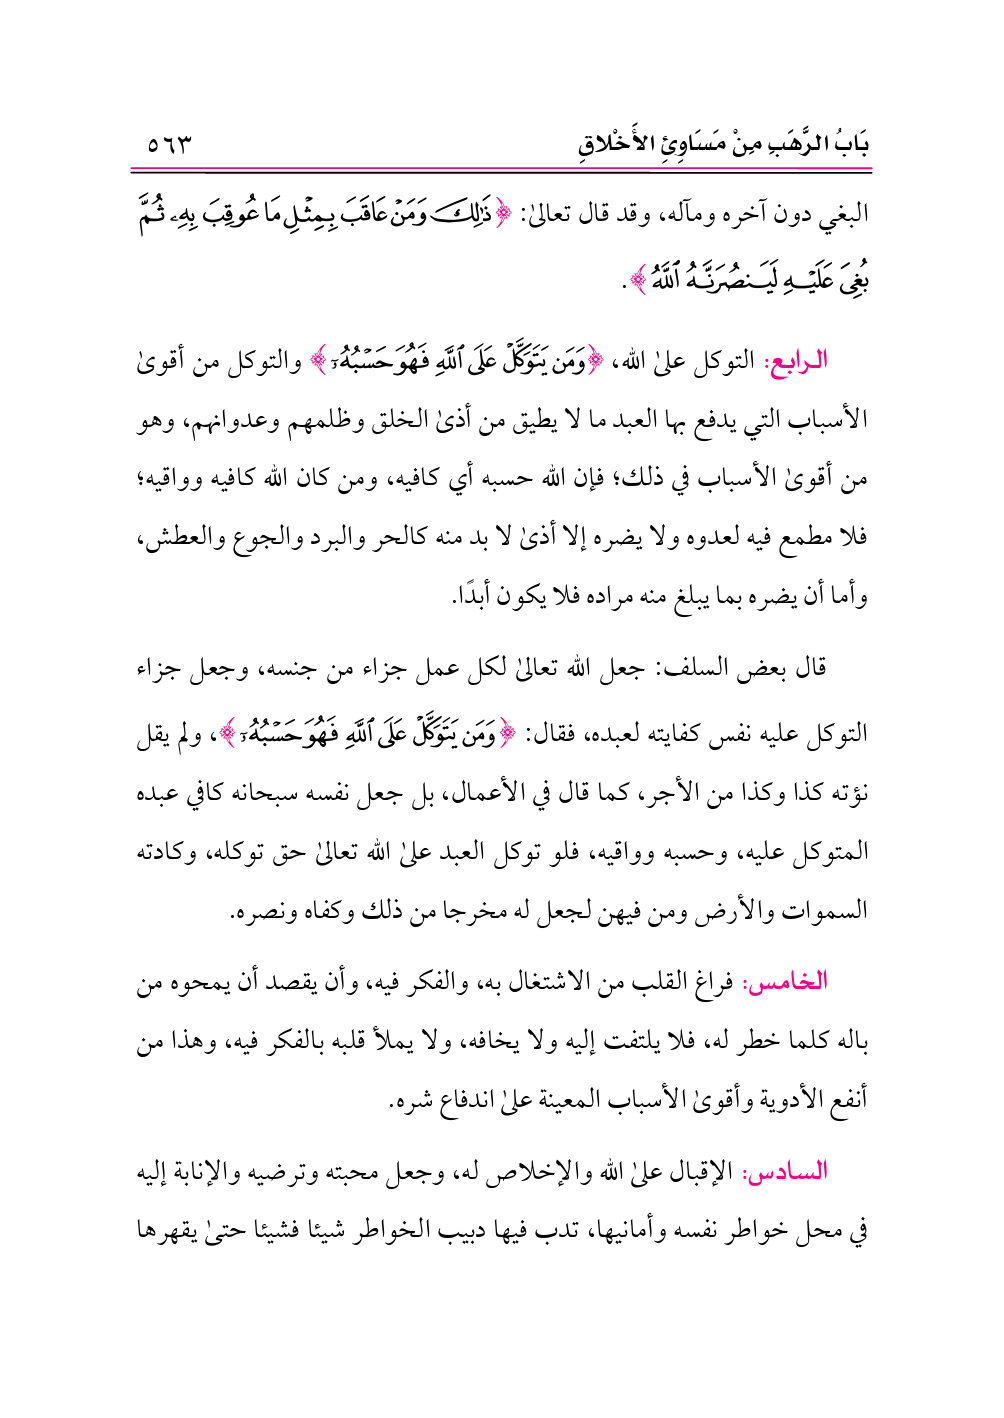 بَابُ الرَّهَبِ مِنْ مَسَاوِئِ الأَخْلاقِ ٥٦٣
البغي دون آخره ومآله، وقد قال تعالىٰ: ﴿ذَٰلِكَ وَمَنْ عَاقَبَ بِمِثْلِ مَا عُوقِبَ بِهِۦ ثُمَّ
بُغِيَ عَلَيْهِ لَيَنصُرَنَّهُ ٱللَّهُ﴾.
الرابع: التوكل علىٰ الله، ﴿وَمَن يَتَوَكَّلْ عَلَى ٱللَّهِ فَهُوَ حَسْبُهُۥٓ﴾ والتوكل من أقوىٰ
الأسباب التي يدفع بها العبد ما لا يطيق من أذىٰ الخلق وظلمهم وعدوانهم، وهو
من أقوىٰ الأسباب في ذلك؛ فإن الله حسبه أي كافيه، ومن كان الله كافيه وواقيه؛
فلا مطمع فيه لعدوه ولا يضره إلا أذىٰ لا بد منه كالحر والبرد والجوع والعطش،
وأما أن يضره بما يبلغ منه مراده فلا يكون أبدًا.
قال بعض السلف: جعل الله تعالىٰ لكل عمل جزاء من جنسه، وجعل جزاء
التوكل عليه نفس كفايته لعبده، فقال: ﴿وَمَن يَتَوَكَّلْ عَلَى ٱللَّهِ فَهُوَ حَسْبُهُۥٓ﴾، ولم يقل
نؤته كذا وكذا من الأجر، كما قال في الأعمال، بل جعل نفسه سبحانه كافي عبده
المتوكل عليه، وحسبه وواقيه، فلو توكل العبد علىٰ الله تعالىٰ حق توكله، وكادته
السموات والأرض ومن فيهن لجعل له مخرجا من ذلك وكفاه ونصره.
الخامس: فراغ القلب من الاشتغال به، والفكر فيه، وأن يقصد أن يمحوه من
باله كلما خطر له، فلا يلتفت إليه ولا يخافه، ولا يملأ قلبه بالفكر فيه، وهذا من
أنفع الأدوية وأقوىٰ الأسباب المعينة علىٰ اندفاع شره.
السادس: الإقبال علىٰ الله والإخلاص له، وجعل محبته وترضيه والإنابة إليه
في محل خواطر نفسه وأمانيها، تدب فيها دبيب الخواطر شيئا فشيئا حتىٰ يقهرها